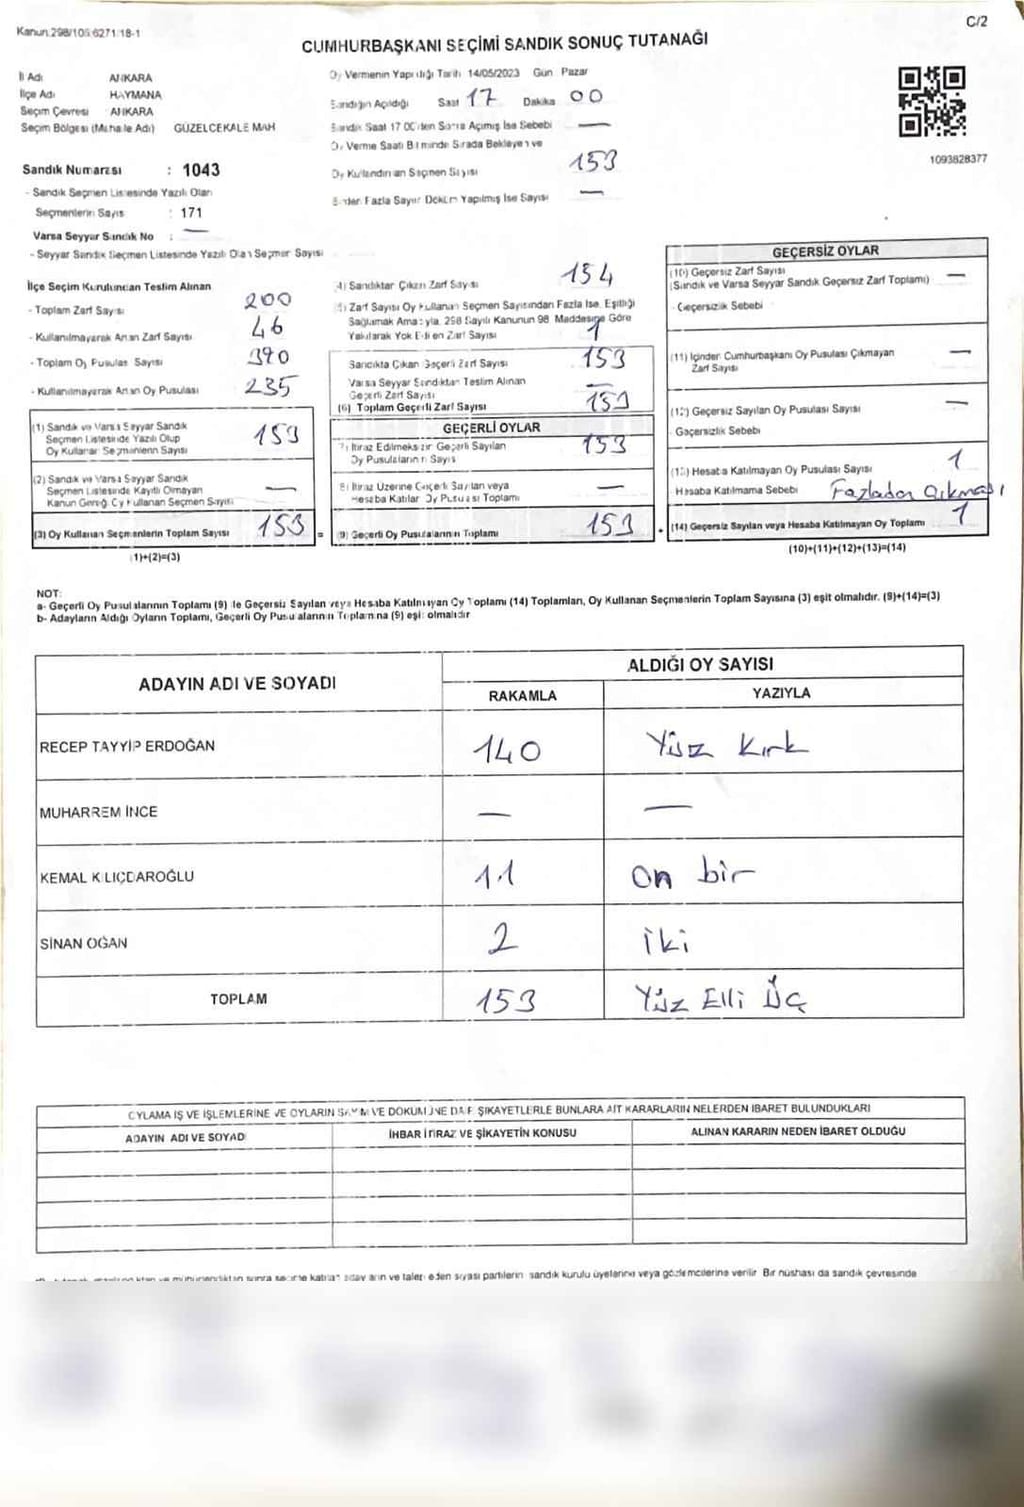 Kanun.298/105 6271/18-1
C/2
CUMHURBAŞKANI SEÇİMİ SANDIK SONUÇ TUTANAĞI
İl Adı ANKARA
İlçe Adı HAYMANA
Seçim Çevresi : ANKARA
Seçim Bölgesi (Mahalle Adı) GÜZELCEKALE MAH
Sandık Numarası : 1043
- Sandık Seçmen Listesinde Yazılı Olan
Seçmenlerin Sayısı : 171
Varsa Seyyar Sandık No : —
- Seyyar Sandık Seçmen Listesinde Yazılı Olan Seçmen Sayısı
Oy Vermenin Yapıldığı Tarih 14/05/2023 Gün Pazar
Sandığın Açıldığı Saat 17 Dakika 00
Sandık Saat 17 00'den Sonra Açılmış İse Sebebi —
Oy Verme Saati Bitiminde Sırada Bekleyen ve
Oy Kullandırılan Seçmen Sayısı 153
Birden Fazla Sayım Döküm Yapılmış İse Sayısı —
1093828377
İlçe Seçim Kurulundan Teslim Alınan
- Toplam Zarf Sayısı 200
- Kullanılmayarak Artan Zarf Sayısı 46
- Toplam Oy Pusulası Sayısı 390
- Kullanılmayarak Artan Oy Pusulası 235
(1) Sandık ve Varsa Seyyar Sandık
Seçmen Listesinde Yazılı Olup
Oy Kullanan Seçmenlerin Sayısı 153
(2) Sandık ve Varsa Seyyar Sandık
Seçmen Listesinde Kayıtlı Olmayan
Kanun Gereği Oy Kullanan Seçmen Sayısı —
(3) Oy Kullanan Seçmenlerin Toplam Sayısı 153 =
(1)+(2)=(3)
(4) Sandıktan Çıkan Zarf Sayısı 154
(5) Zarf Sayısı Oy Kullanan Seçmen Sayısından Fazla İse, Eşitliği
Sağlamak Amacıyla, 298 Sayılı Kanunun 98 Maddesine Göre
Yakılarak Yok Edilen Zarf Sayısı 1
Sandıkta Çıkan Geçerli Zarf Sayısı 153
Varsa Seyyar Sandıktan Teslim Alınan
Geçerli Zarf Sayısı —
(6) Toplam Geçerli Zarf Sayısı 153
GEÇERLİ OYLAR
(7) İtiraz Edilmeksizin Geçerli Sayılan
Oy Pusulalarının Sayısı 153
(8) İtiraz Üzerine Geçerli Sayılan veya
Hesaba Katılan Oy Pusulası Toplamı —
(9) Geçerli Oy Pusulalarının Toplamı 153 +
GEÇERSİZ OYLAR
(10) Geçersiz Zarf Sayısı
(Sandık ve Varsa Seyyar Sandık Geçersiz Zarf Toplamı) —
- Geçersizlik Sebebi
(11) İçinden Cumhurbaşkanı Oy Pusulası Çıkmayan
Zarf Sayısı —
(12) Geçersiz Sayılan Oy Pusulası Sayısı —
- Geçersizlik Sebebi
(13) Hesaba Katılmayan Oy Pusulası Sayısı 1
Hesaba Katılmama Sebebi Fazladan Çıkması
(14) Geçersiz Sayılan veya Hesaba Katılmayan Oy Toplamı 1
(10)+(11)+(12)+(13)=(14)
NOT:
a- Geçerli Oy Pusulalarının Toplamı (9) ile Geçersiz Sayılan veya Hesaba Katılmayan Oy Toplamı (14) Toplamları, Oy Kullanan Seçmenlerin Toplam Sayısına (3) eşit olmalıdır. (9)+(14)=(3)
b- Adayların Aldığı Oyların Toplamı, Geçerli Oy Pusulalarının Toplamına (9) eşit olmalıdır
ADAYIN ADI VE SOYADI ALDIĞI OY SAYISI
RAKAMLA YAZIYLA
RECEP TAYYİP ERDOĞAN 140 Yüz Kırk
MUHARREM İNCE — —
KEMAL KILIÇDAROĞLU 11 On bir
SİNAN OĞAN 2 iki
TOPLAM 153 Yüz Elli Üç
OYLAMA İŞ VE İŞLEMLERİNE VE OYLARIN SAYIM VE DÖKÜMÜNE DAİR ŞİKAYETLERLE BUNLARA AİT KARARLARIN NELERDEN İBARET BULUNDUKLARI
ADAYIN ADI VE SOYADI İHBAR İTİRAZ VE ŞİKAYETİN KONUSU ALINAN KARARIN NEDEN İBARET OLDUĞU
sonra seçime katılan adayların ve talep eden siyasi partilerin sandık kurulu üyelerine veya gözlemcilerine verilir Bir nüshası da sandık çevresinde